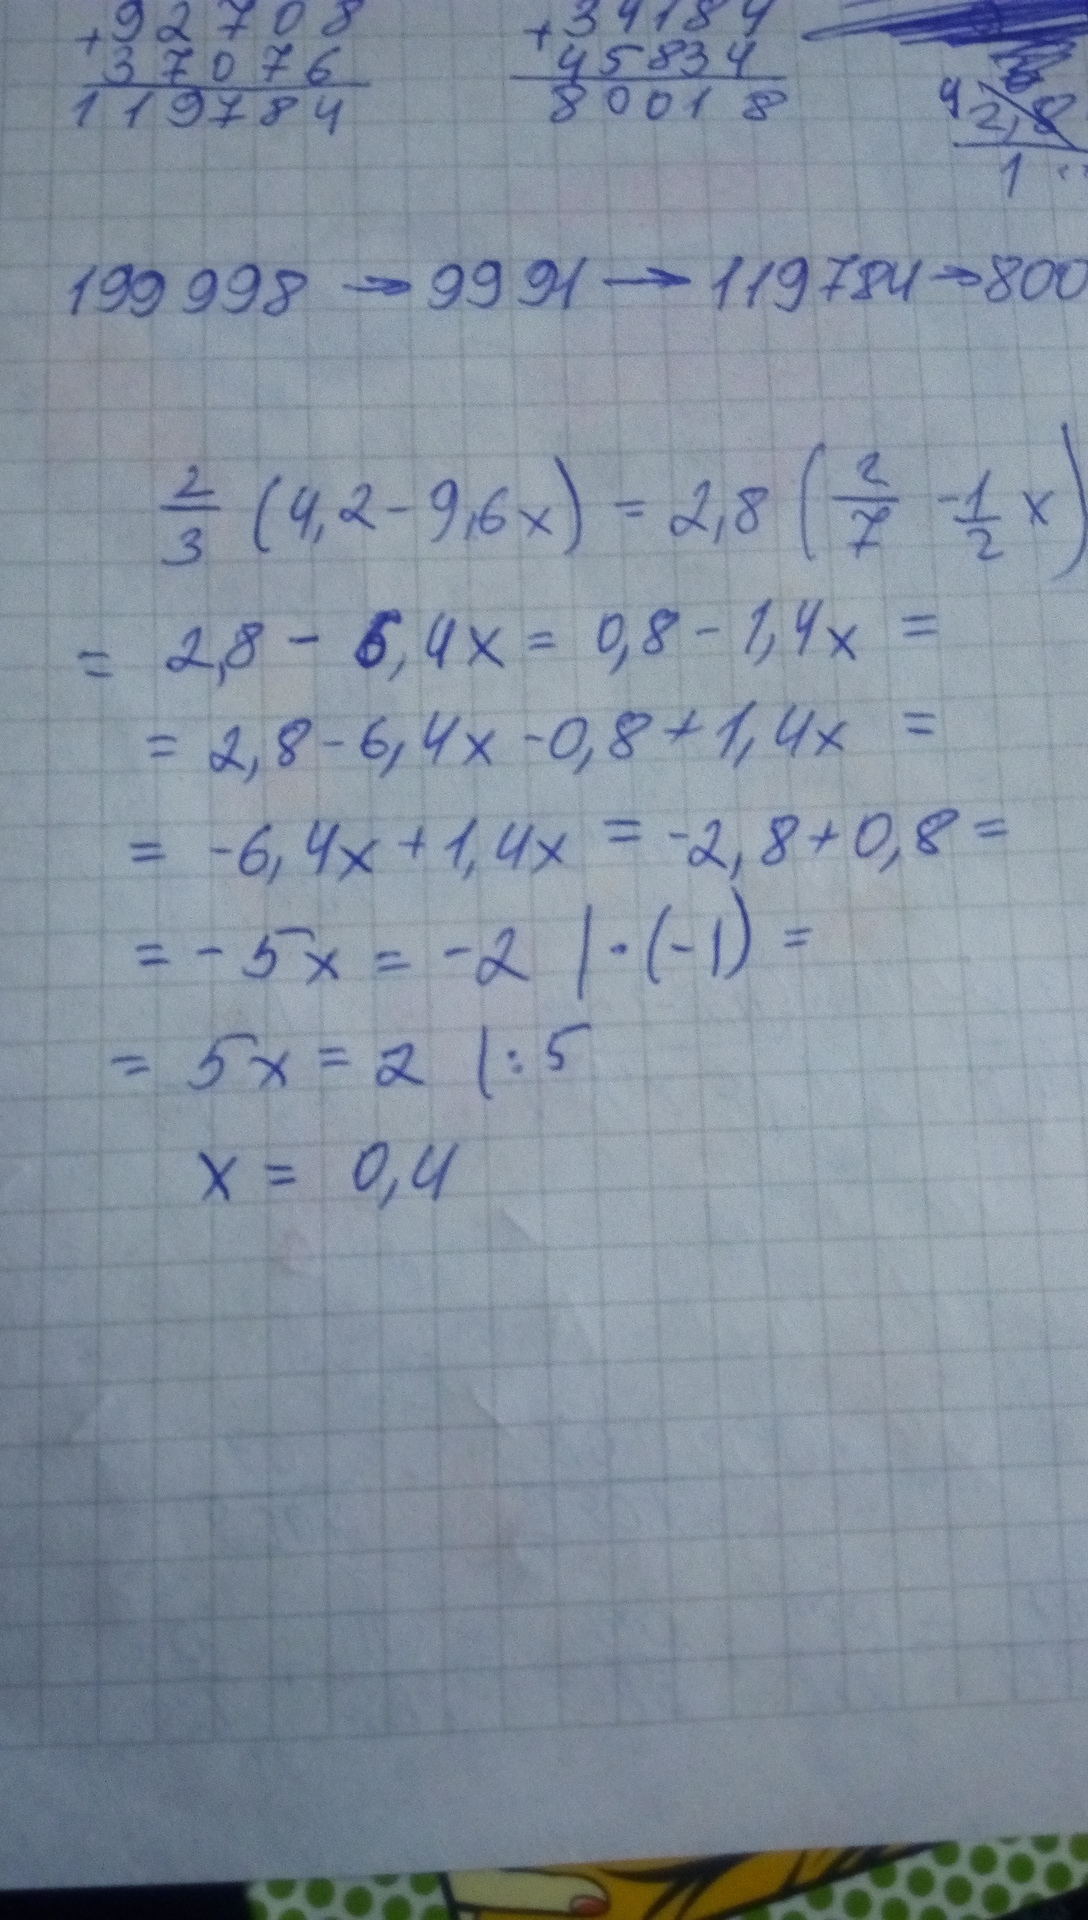 + 92708 + 34184
37076 45834
119784 80018
4 2,8
1
199 998 → 9991 → 119784 → 800
2/3 (4,2 - 9,6x) = 2,8 (2/7 - 1/2 x)
= 2,8 - 6,4x = 0,8 - 1,4x =
= 2,8 - 6,4x - 0,8 + 1,4x =
= -6,4x + 1,4x = -2,8 + 0,8 =
= -5x = -2 | · (-1) =
= 5x = 2 | : 5
x = 0,4